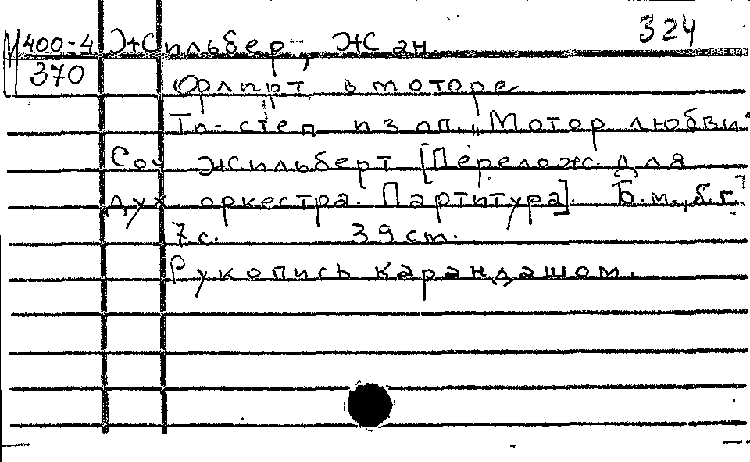 324
М400-4 Жильбер, Жан
370 Флирт в моторе
Ту-степ из оп. „Мотор любви"
Соч Жильберт [Перелож. для
дух. оркестра. Партитура]. Б.м., б.г.
7с. 39 cm.
Рукопись карандашом.